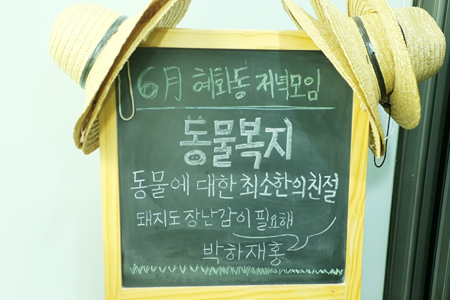 6月 혜화동 저녁모임
동물복지
동물에 대한 최소한의 친절
돼지도 장난감이 필요해
박하재홍